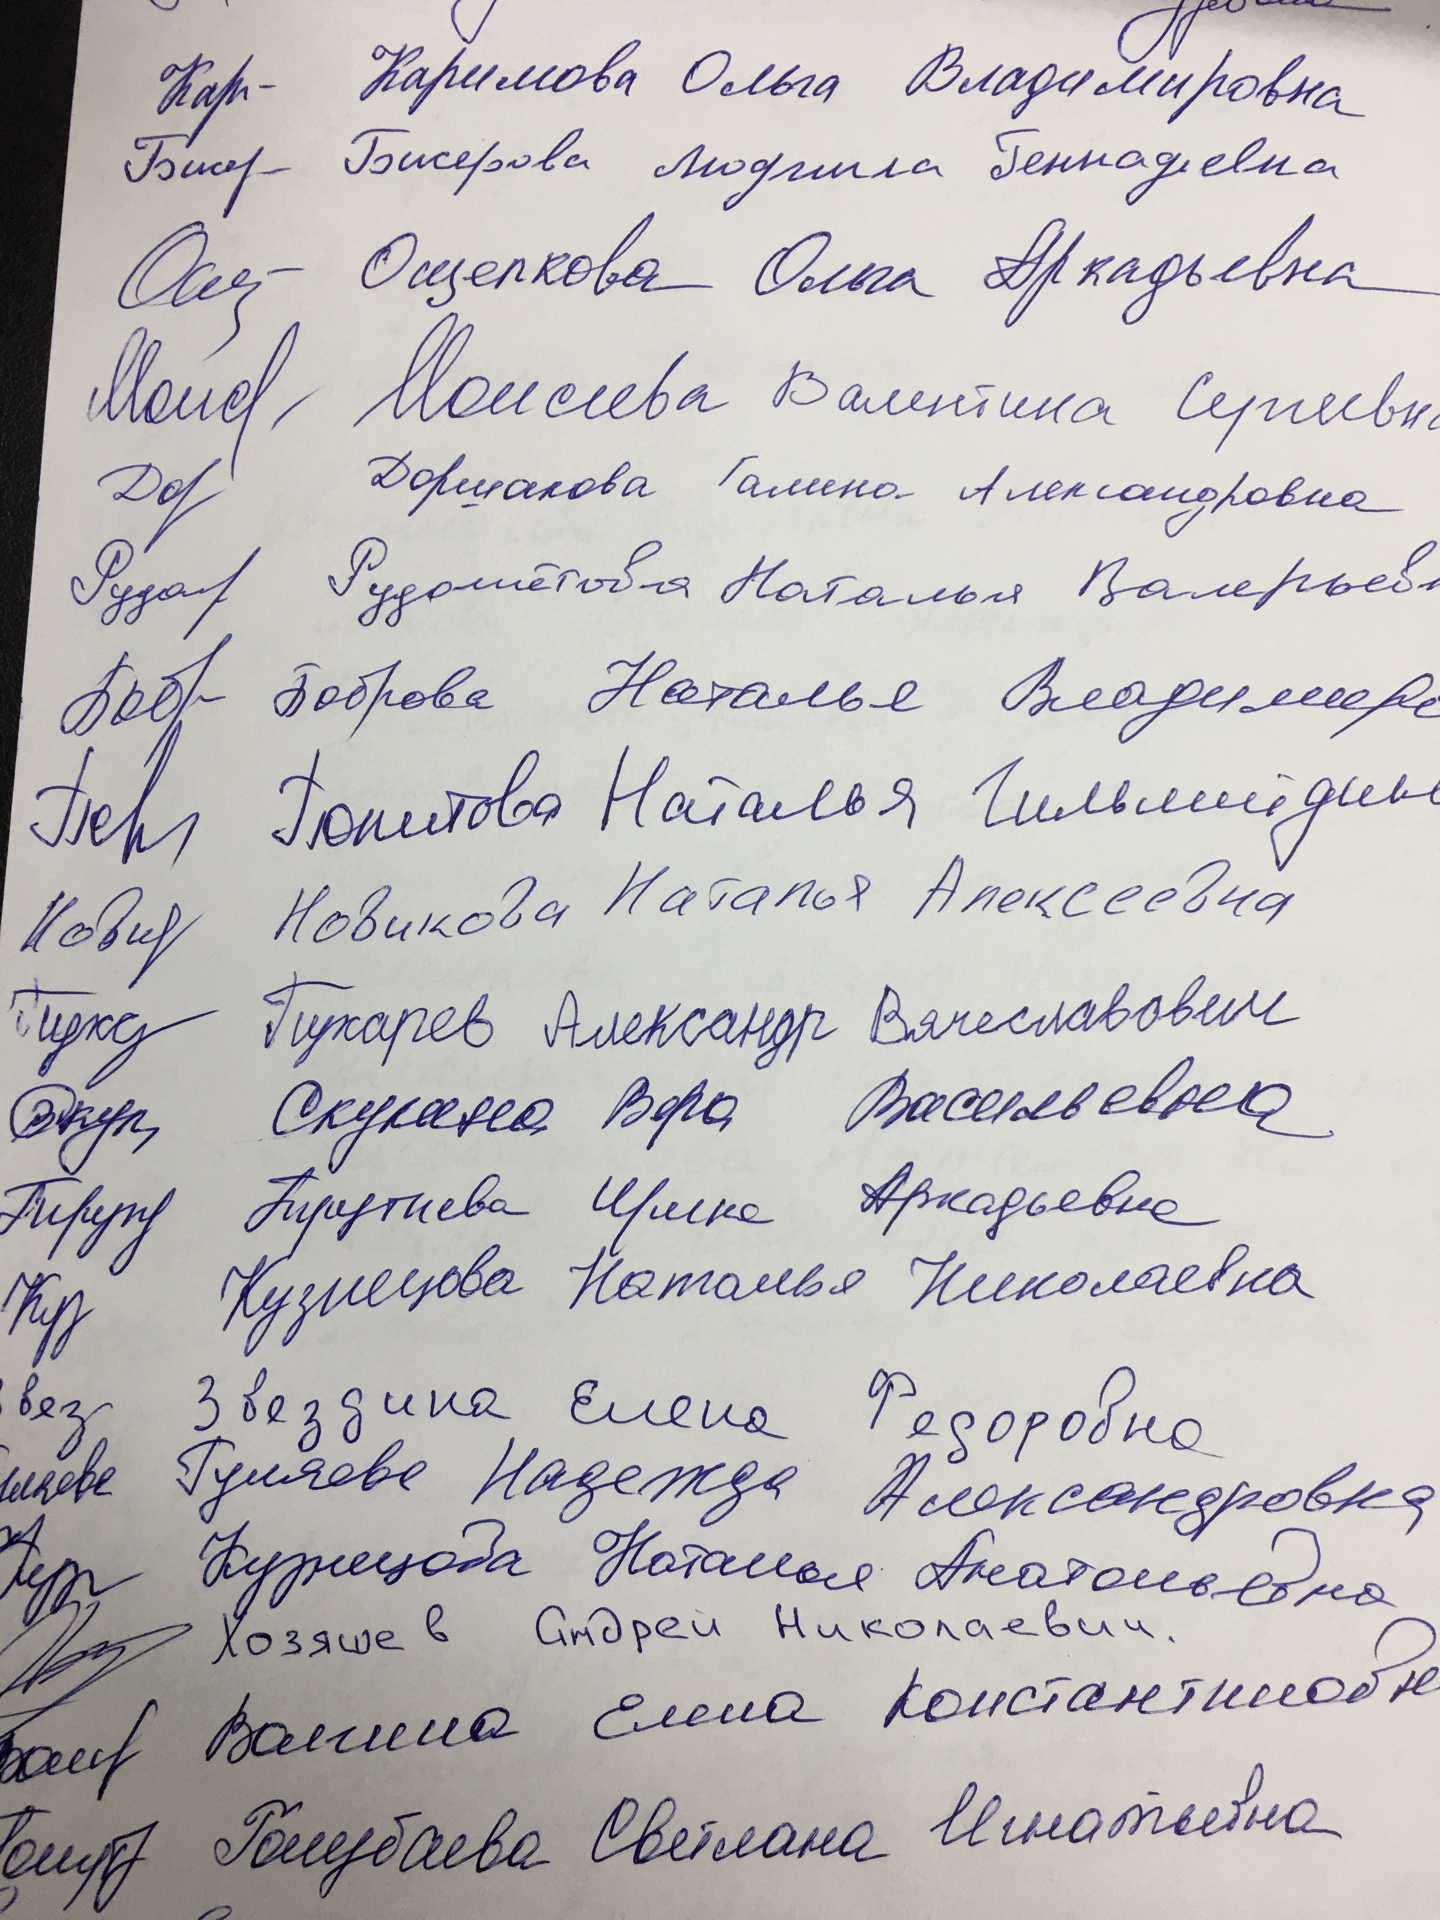 Кар- Каримова Ольга Владимировна
Бисер- Бисерова Людмила Геннадьевна
Ощ- Ощепкова Ольга Аркадьевна
Моис Моисеева Валентина Сергеевна
Дор Доршакова Галина Александровна
Рудом Рудометова Наталья Валерьевн
Бобр- Боброва Наталья Владимиро
Наталья
Новик Новикова Наталья Алексеевна
Александр Вячеславович
Скуп Вера Васильевна
Аркадьевна
Куз Кузнецова Наталья Николаевна
Звез Звездина Елена Федоровна
ляева Гуляева Надежда Александровна
Куз Кузнецова Наталья Анатольевна
Хозяшев Андрей Николаевич.
Елена Константиновн
Голубаева Светлана Игнатьевна